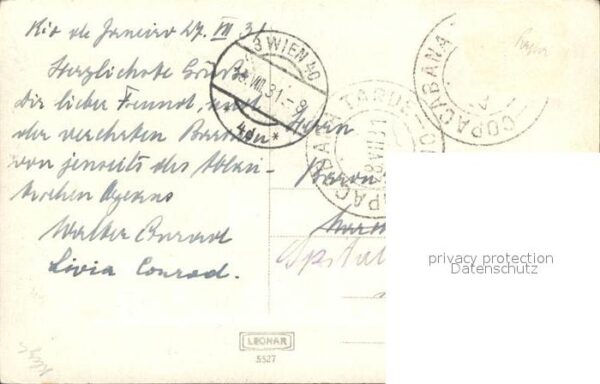 Rio de Janeiro 27. VII 31
Herzlichste Grüße
Dir lieber Freund, und
der verehrten Baronin
von jenseits des Atlan-
tischen Ozeans
Walter Conrad
Livia Conrad.
3 WIEN 40
VIII. 31. - 8
* 4du *
TARDE
COPACABANA
COPACABANA
Herrn
Baron
Spital
LEONAR
5527
privacy protection
Datenschutz